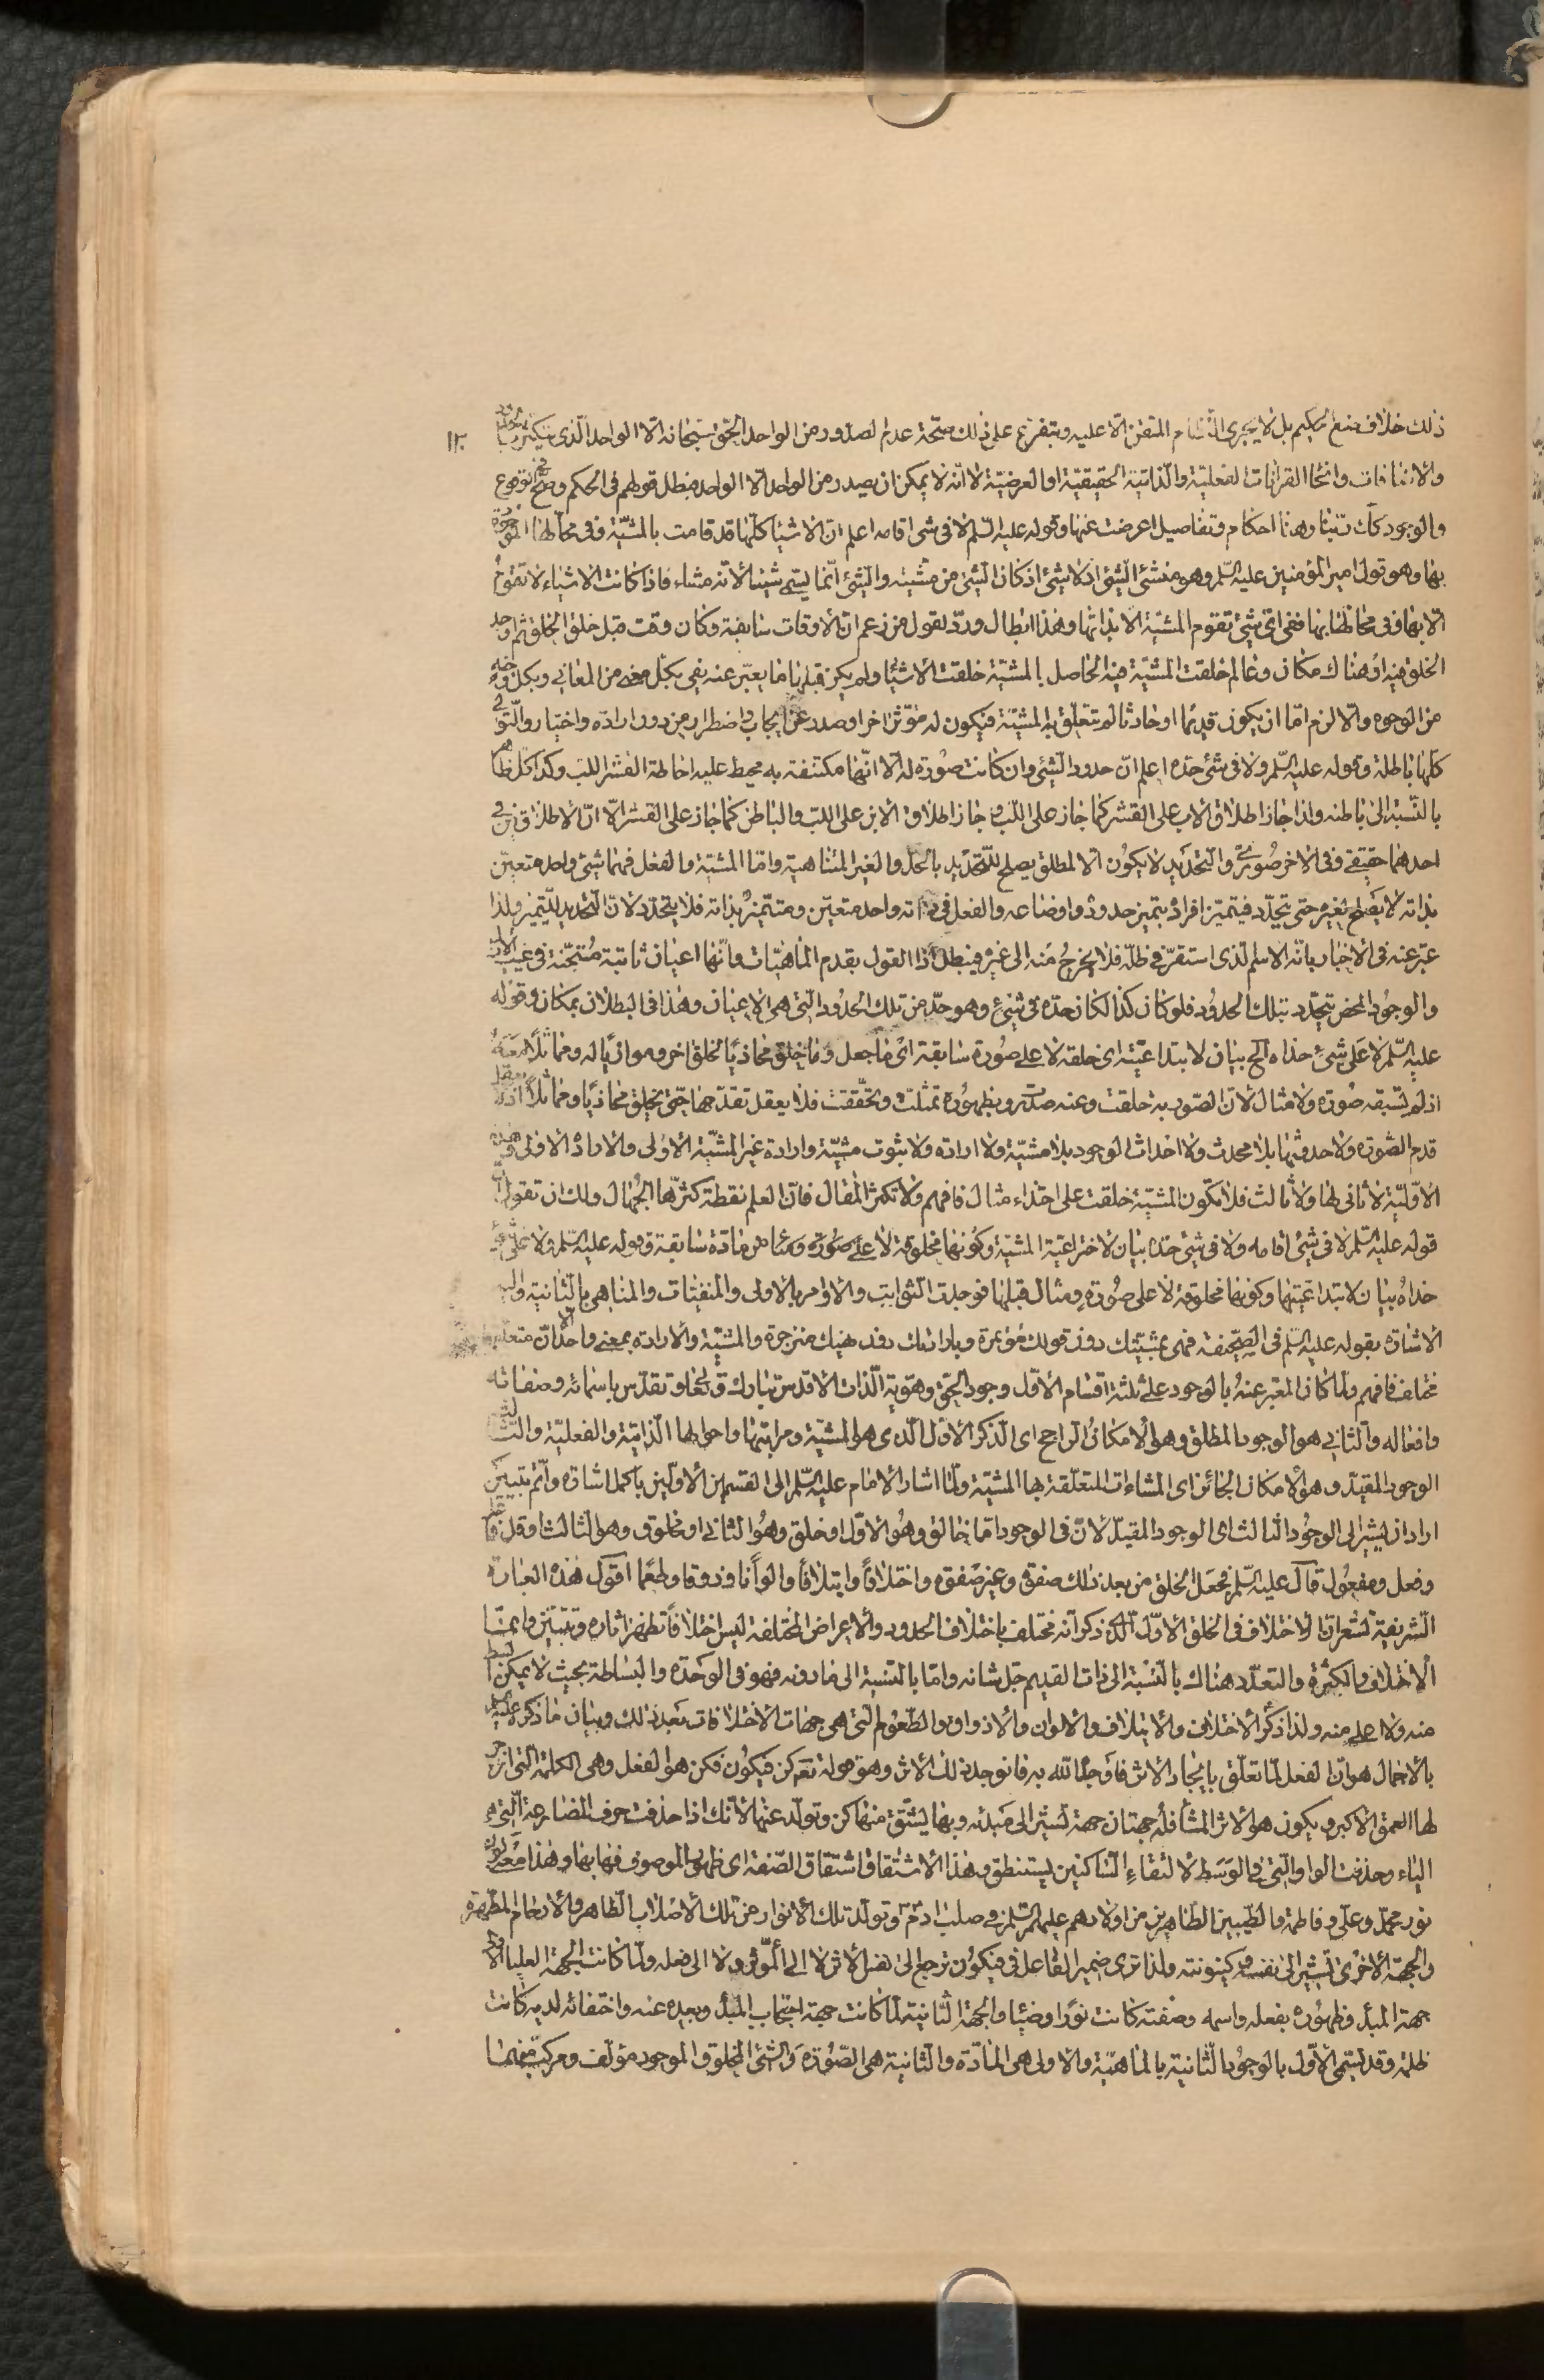 ذلك خلاف صنع الحكيم بل لا يجرى النظام المتقن الا عليه ويتفرع على ذلك صحة عدم الصدور من الواحد الحق سبحانه الا الواحد الذى يتكثر
والاضافات وانحا القرانات الفعلية والذاتية الحقيقية او العرضية لا انه لا يمكن ان يصدر من الواحد الا الواحد فبطل قولهم فى الحكم وصح
والوجود كله وهنا احكام وتفاصيل اعرضت عنها وقوله عليه السلم لا فى شى اقامه اعلم ان الاشيا كلها قد قامت بالمشية وفى محالها
بها وهو قول امير المؤمنين عليه السلم وهو منشئ الشئ اذ لا شئ اذ كان الشئ من مشيته والشئ انما يسمى شيئا لانه مشاء فاذا كانت الاشياء لا تقوم
الا بها وفى محالها بها ففى اى شئ تقوم المشية الا بذاتها وهذا ابطال ورد لقول من زعم ان الاوقات سابقة وكان وقت قبل خلق الخلق ثم اوجد
الخلق فيه او هناك مكان وعالم خلقت المشية فيه الحاصل بالمشية خلقت الاشيا ولم يكن قبلها ما يعبر عنه بفى بكل معنى من المعانى وبكل وجه
من الوجوه والا لزم اما ان يكون قديما او حادثا لم تتعلق به المشية فيكون له مؤثر اخر او صدر عن ايجاب واضطرار من دون ارادة واختيار والتوالى
كلها باطلة وقوله عليه السلم ولا فى شئ حده اعلم ان حدود الشئ وان كانت صورة له الا انها مكتنفة به محيط عليه احاطة القشر اللب وكذا كل ظاهر
بالنسبة الى باطنه ولذا جاز اطلاق الاب على القشر كما جاز على اللب وجاز اطلاق الابن على اللب والباطن كما جاز على القشر الا ان الاطلاق فى
احدهما حقيقى وفى الاخر صورى والتحديد لا يكون الا لمطلق يصلح للتحديد بالحدود الغير المتناهية واما المشية والفعل فهما شئ واحد متعين
بذاته لا يصلح لغيره حتى يتحدد فيتميز افراده بتميز حدوده واوضاعه والفعل فى ذاته واحد متعين ومتميز بذاته فلا يتحدد لان التحديد للتميز ولذا
عبر عنه فى الاخبار بانه الاسم الذى استقر فى ظله فلا يخرج منه الى غيره فبطل اذا القول بقدم الماهيات وانها اعيان ثابتة مستجنة فى غيب
والوجود المحض يتحدد بتلك الحدود فلو كان كذا لكان حده فى شئ وهو حد من تلك الحدود التى هى الاعيان وهذا فى البطلان بمكان وقوله
عليه السلم لا على شئ حذاه الخ بيان لابتداعيته اى خلقه لا على صورة سابقة اى ما جعل وما خلق محاذيا لخلق اخر وموازيا له ومماثلا معه
اذ لم تسبقه صورة ولا مثال لان الصور به خلقت وعنه صدرت وبظهوره تمثلت وتحققت فلا يعقل تقدمها حتى يخلق محاذيا ومماثلا اذ لا
قدم الصورة ولا حدوثها بلا محدث ولا احداث الوجود بلا مشية ولا ارادة ولا ثبوت مشية وارادة غير المشية الاولى والارادة الاولى
الاولية لا ثانى لها ولا ثالث فلا تكون المشية خلقت على احتذاء مثال فافهم ولا تكثر المقال فان العلم نقطة كثرها الجهال ولك ان تقول
قوله عليه السلم لا فى شئ اقامه ولا فى شئ حده بيان لاختراعية المشية وكونها مخلوقة لا على صورة ومثال من مادة سابقة وقوله عليه السلم ولا على شئ
حذاه بيان لابتداعيتها وكونها مخلوقة لا على صورة ومثال قبلها فوجدت الثوابت والاوامر بالاولى والمنفيات والمناهى بالثانية واليه
الاشارة بقوله عليه السلم فى الصحيفة فهى بمشيتك دون قولك مؤتمرة وبارادتك دون نهيك منزجرة والمشية والارادة بمعنى واحد الا ان متعلقهما
مختلف فافهم ولما كان المعبر عنه بالوجود على ثلثة اقسام الاول وجود الحق وهوية الذات الاقدس تبارك وتعالى وتقدس باسمائه وصفاته
وافعاله والثانى هو الوجود المطلق وهو الامكان الراجح اى الذكر الاول الذى هو المشية ومراتبها واحوالها الذاتية والفعلية والثالث
الوجود المقيد وهو الامكان الجائز اى المشاءات المتعلقة بها المشية ولما اشار الامام عليه السلم الى القسمين الاولين باكمل اشارة واتم تبيين
اراد ان يشير الى الوجود الثالث اى الوجود المقيد لان فى الوجود اما خالق وهو الاول او خلق وهو الثانى او مخلوق وهو الثالث او قل فاعل
وفعل ومفعول قال عليه السلم فجعل الخلق من بعد ذلك صفوة وغير صفوة واختلافا وايتلافا والوانا وذوقا وطعما اقول هذه العبارة
الشريفة تشعر ان الاختلاف فى الخلق الاول الذى ذكر انه مختلف باختلاف الحدود والاعراض المختلفة ليس اختلافا تظهر اثاره وتتبين وانما
الاختلاف والكثرة والتعدد هناك بالنسبة الى ذات القديم جل شانه واما بالنسبة الى ما دونه فهو فى الوحدة والبساطة بحيث لا يمكن ابسط
منه ولا اعلى منه ولذا ذكر الاختلاف والايتلاف والالوان والاذواق والطعوم التى هى جهات الاختلافات بعد ذلك وبيان ما ذكره عليه السلم
بالاجمال هو ان الفعل لما تعلق بايجاد الاثر فاوجد الله به فانوجد ذلك الاثر وهو قوله تعالى كن فيكون فكن هو الفعل وهى الكلمة التى انزجر
لها العمق الاكبر ويكون هو الاثر المشاء فله جهتان جهة تشير الى مبدئه وبها يشتق منها كن وتولد عنها لانك اذا حذفت حرف المضارعة التى هى
الياء وحذفت الواو التى فى الوسط لالتقاء الساكنين يستنطق وهذا الاشتقاق اشتقاق الصفة اى ظهور الموصوف فيها بها وهذا معنى
نور محمد وعلى وفاطمة والطيبين الطاهرين من اولادهم عليهم السلم فى صلب ادم وتولد تلك الانوار من تلك الاصلاب الطاهرة والارحام المطهرة
والجهة الاخرى تشير الى نفسه وكينونته ولذا ترى ضمير الفاعل فى فيكون ترجع الى نفس الاثر لا الى المؤثر ولا الى فعله ولما كانت الجهة العليا
جهة المبدأ وظهوره بفعله واسمه وصفته كانت نورا وضياء والجهة الثانية لما كانت جهة احتجاب المبدأ وبعده عنه واختفائه لديه كانت
ظلمة وقد يسمى الاول بالوجود والثانية بالماهية والاولى هى المادة والثانية هى الصورة والشئ المخلوق الموجود مؤلف ومركب منهما
١٢